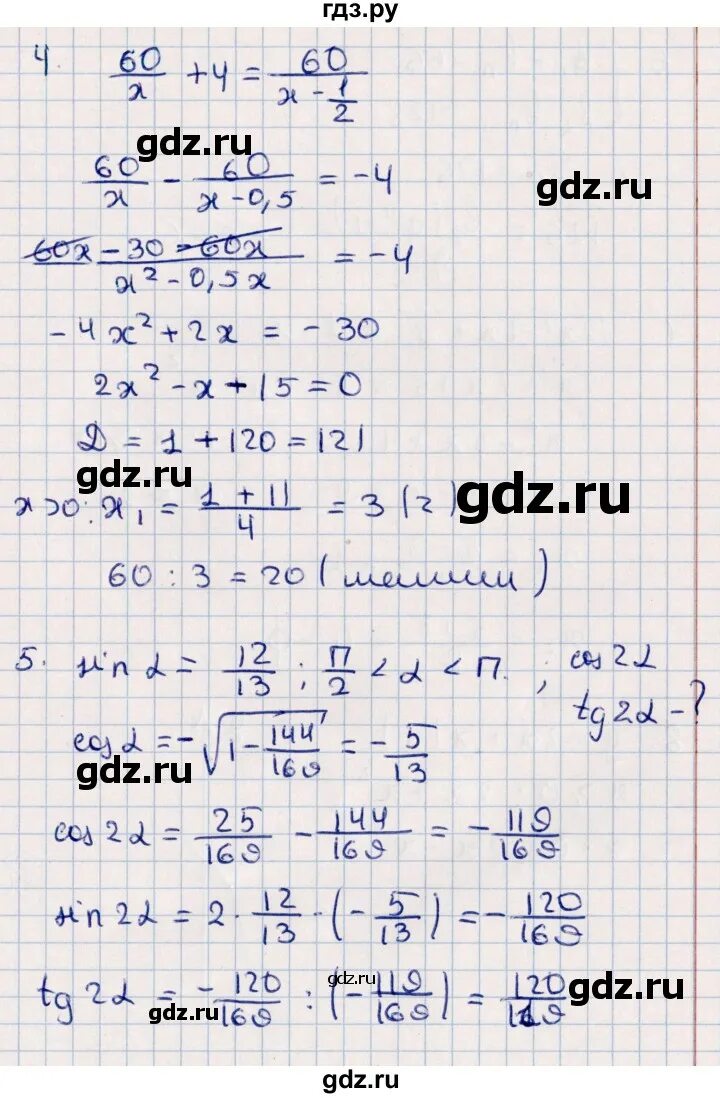 гдз.ру
4. 60/x + 4 = 60/(x - 1/2)
gdz.ru
gdz.ru
60/x - 60/(x - 0,5) = -4
(60x - 30 - 60x)/(x² - 0,5x) = -4
-4x² + 2x = -30
2x² - x + 15 = 0
Д = 1 + 120 = 121
gdz.ru
gdz.ru
x>0: x₁ = (1 + 11)/4 = 3 (г)
60 : 3 = 20 (машин)
5. sin α = 12/13 ; П/2 < α < П. ; cos 2α
tg 2α - ?
cos α = -√(1 - 144/169) = -5/13
gdz.ru
gdz.ru
cos 2α = 25/169 - 144/169 = -119/169
sin 2α = 2 · 12/13 · (-5/13) = -120/169
gdz.ru
tg 2α = -120/169 : (-119/169) = 120/119
gdz.ru
gdz.ru
gdz.ru